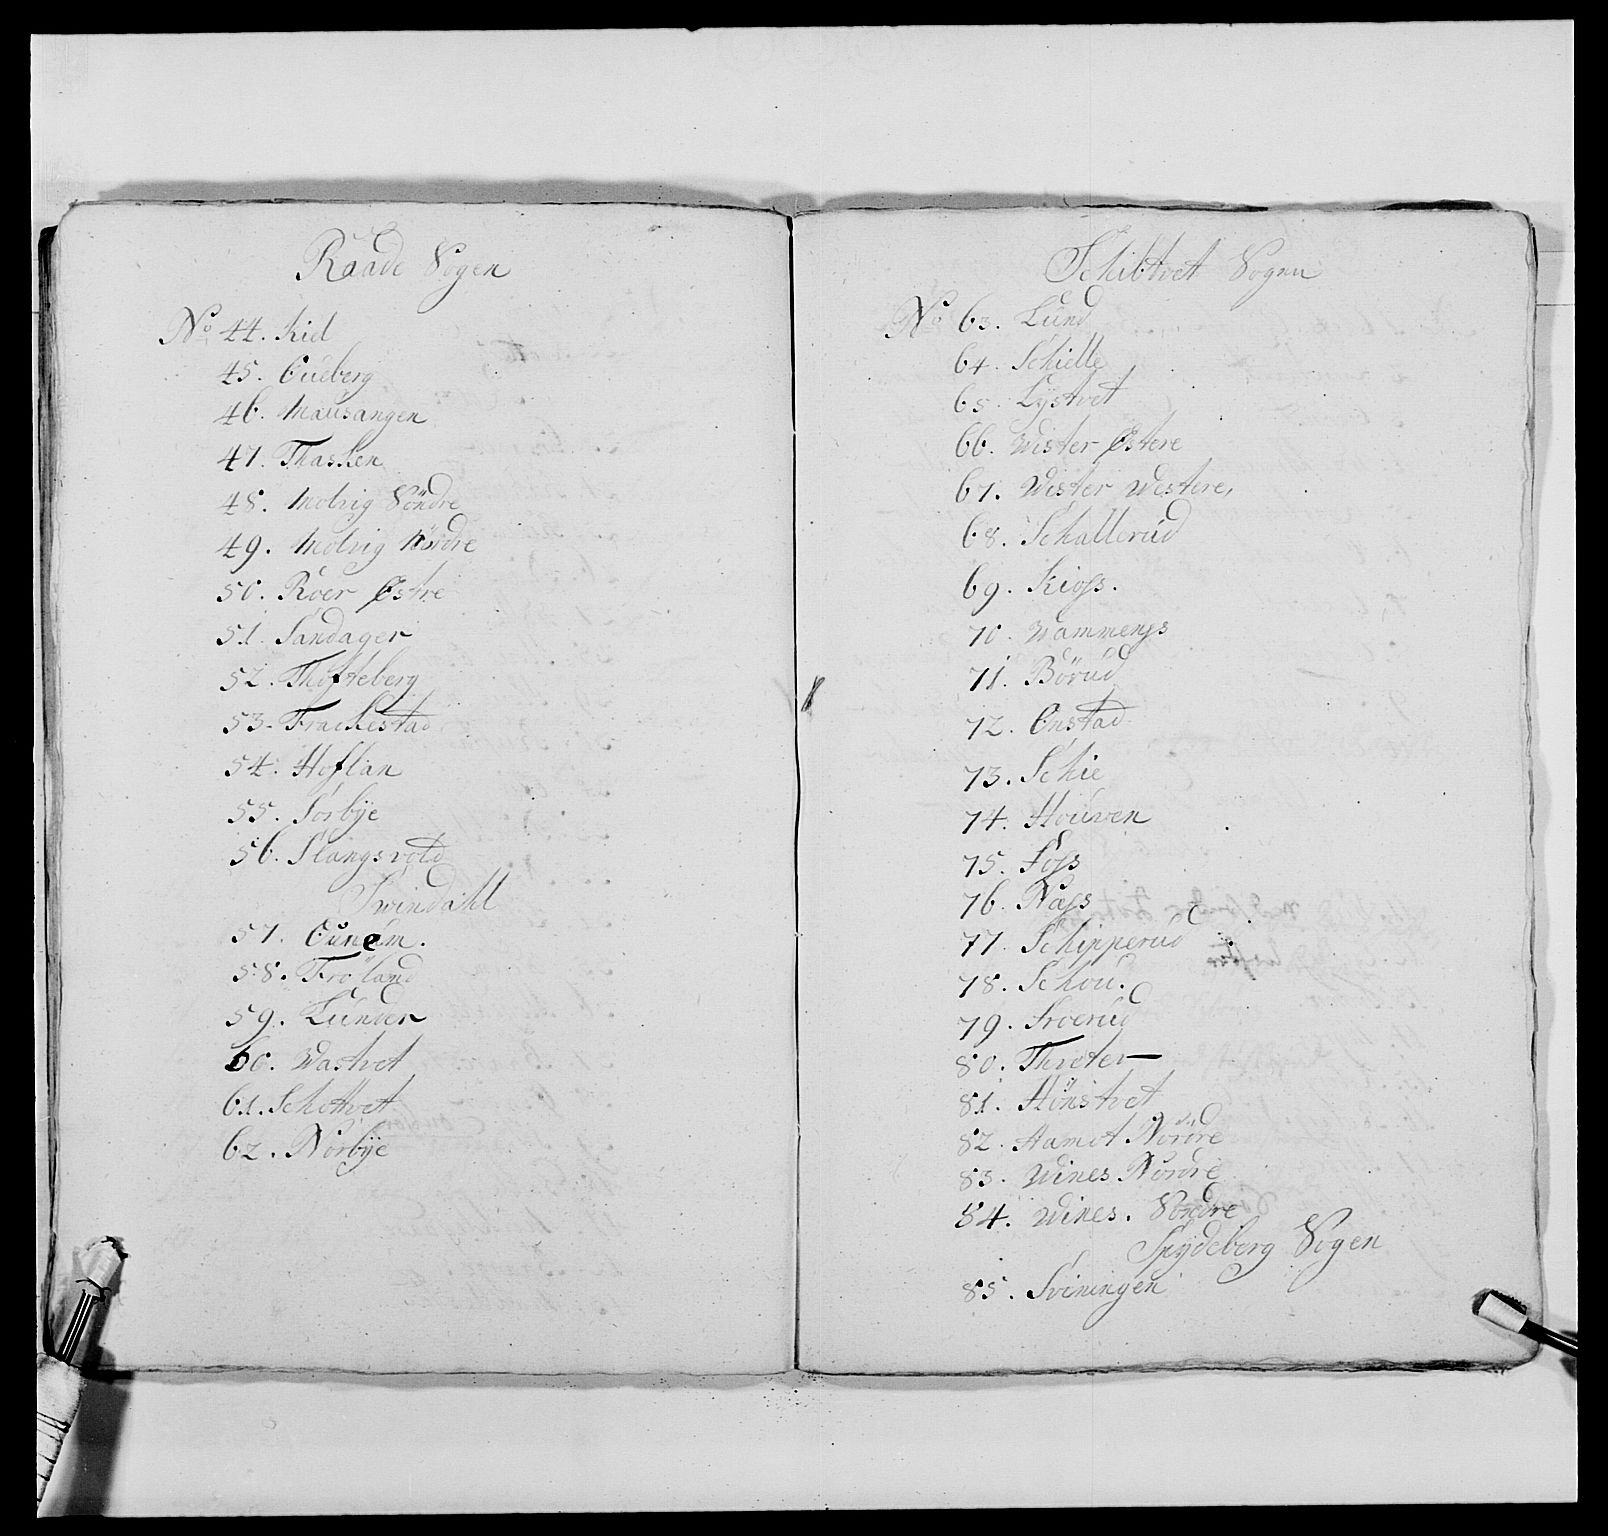 Raade Sogen
No 44. Kid
45. Oueberg
46. Mausangen
47. Thasken
48. Molvig Söndre
49. Molvig Nördre
50. Röer Østre
51. Sandager
52. Thofteberg
53. Frackestad
54. Hoflan
55. Sorbye
56. Slangsvold
Swindahl
57. Ounem.
58. Fröland
59. Lunder
60. Wastvet
61. Schottvet
62. Norbye
Schibtvet Sogen
No 63. Lund
64. Schielle
65. Lystvet
66. Wister Østere
67. Wister Westere,
68. Schallerud
69. Kioss.
70. Wammenss
71. Börud
72. Onstad
73. Schie
74. Houwen
75. Foss
76. Næss
77. Schipperud
78. Schou.
79. Froerud
80. Throter
81. Hönstvet
82. Hamot Nordre
83. Wines Nordre
84. Wines. Söndre
Spydeberg Sogen
85. Sviningen